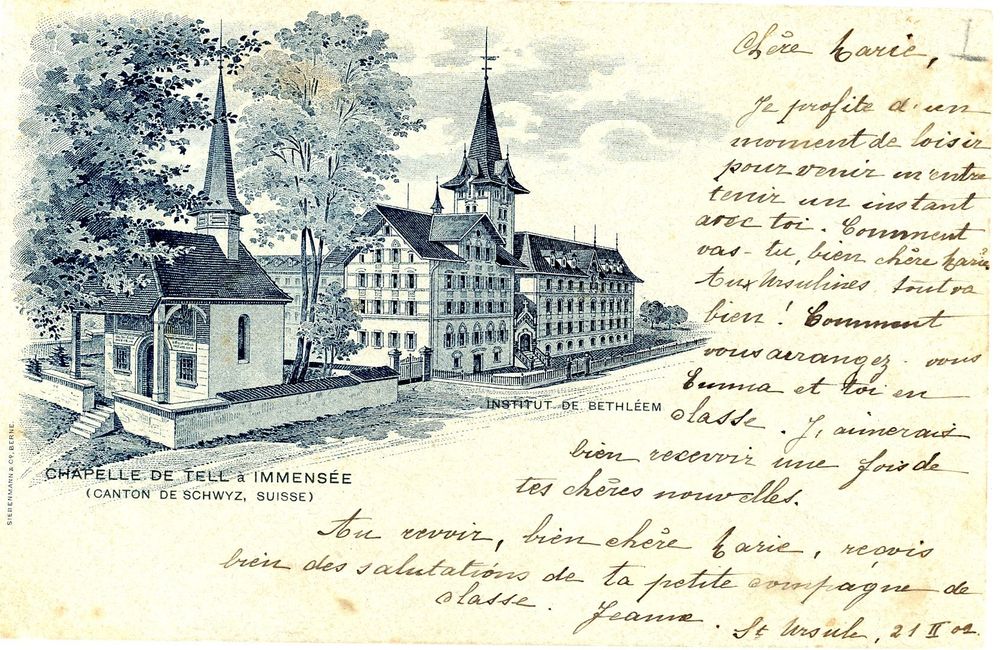 Chère Marie,
Je profite d'un
moment de loisir
pour venir m'entre
tenir un instant
avec toi. Comment
vas-tu, bien chère Marie
Aux Ursulines, tout va
bien! Comment
vous arrangez-vous
Emma et toi en
classe. J'aimerais
bien recevoir une fois de
tes chères nouvelles.
Au revoir, bien chère Marie, reçois
bien des salutations de ta petite compagne de
classe. Jeanne.
St Ursule, 21 II 02.
INSTITUT DE BETHLÉEM
CHAPELLE DE TELL à IMMENSÉE
(CANTON DE SCHWYZ, SUISSE)
SIEBENMANN & Co, BERNE.